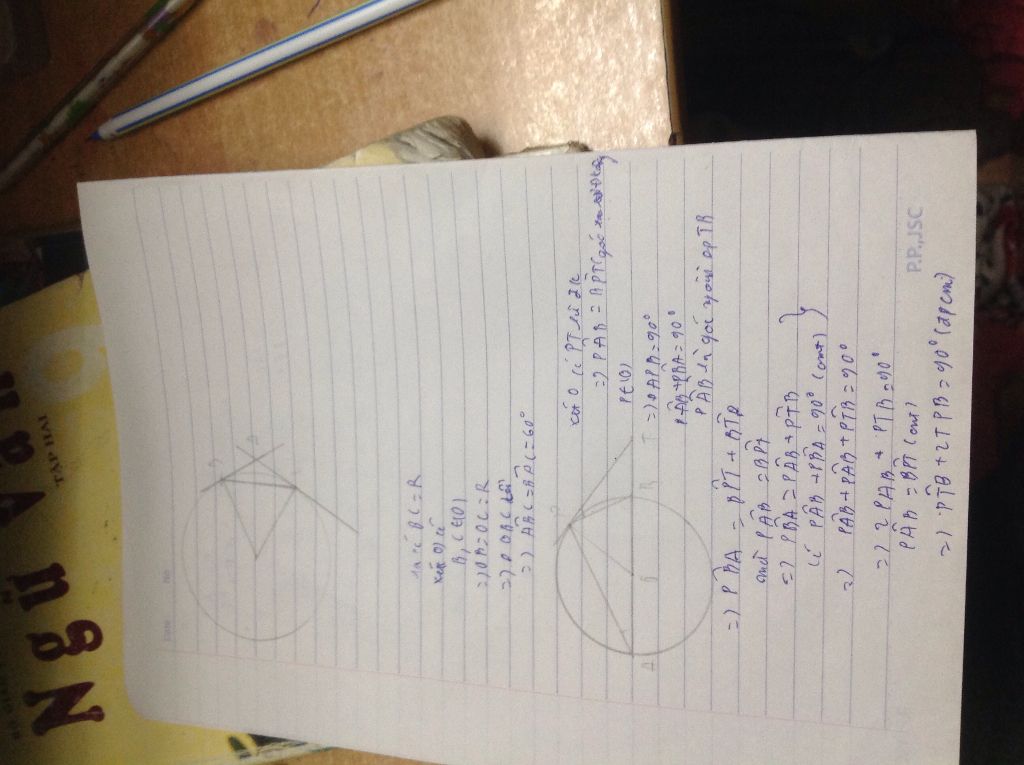 Ngữ văn
TẬP HAI
Date No
Ta có BC = R
xét (O) có
B, C ∈ (O)
=> OB = OC = R
=> △OBC đều
=> = 60°
xét O có PT là
=> PAB = BPT (góc
P ∈ (O)
=> △APB = 90°
PAB + PBA = 90°
PAB là góc TB
=> PBA = BPT + BTP
mà PAB = BPT
=> PBA = PAB + PTB
có PAB + PBA = 90° (cmt)
=> PAB + PAB + PTB = 90°
=> 2PAB + PTB = 90°
PAB = BPT (cmt)
=> PTB + 2TPB = 90° (đpcm)
P.P.,JSC